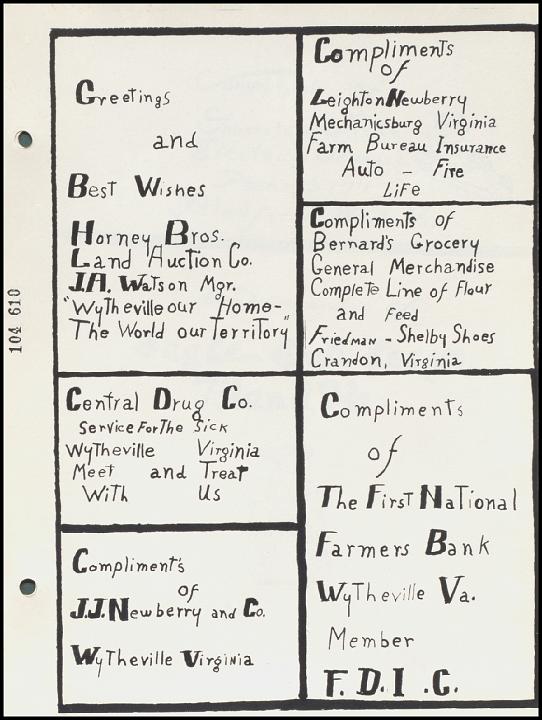 Greetings
and
Best Wishes
Horney Bros.
Land Auction Co.
J.A. Watson Mgr.
"Wytheville our Home-
The World our Territory"
Central Drug Co.
Service For The Sick
Wytheville Virginia
Meet and Treat
With Us
Compliment's
of
J.J. Newberry and Co.
Wytheville Virginia
Compliments
of
Leighton Newberry
Mechanicsburg Virginia
Farm Bureau Insurance
Auto - Fire
Life
Compliments of
Bernard's Grocery
General Merchandise
Complete Line of Flour
and Feed
Friedman - Shelby Shoes
Crandon, Virginia
Compliments
of
The First National
Farmers Bank
Wytheville Va.
Member
F.D.I.C.
104 610